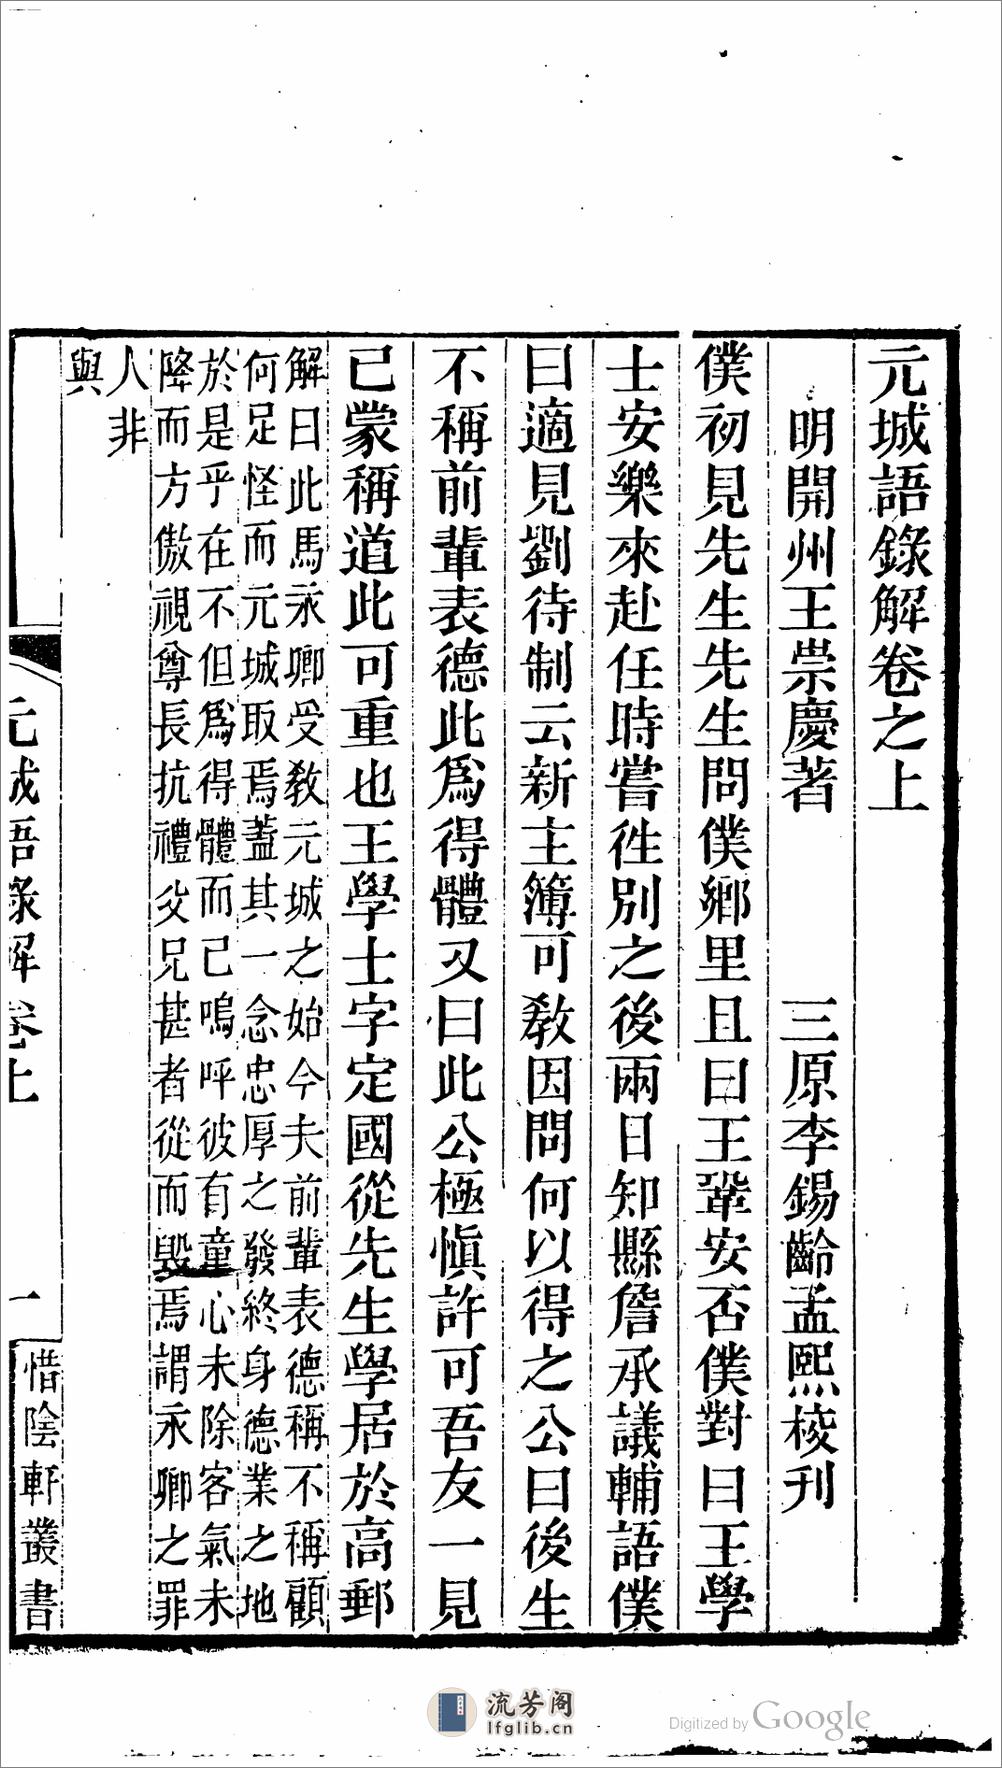 元城語錄解卷之上
明開州王崇慶著　三原李錫齡孟熙校刊
僕初見先生先生問僕鄉里且曰王鞏安否僕對曰王學
士安樂來赴任時嘗徃別之後兩日知縣詹承議輔語僕
曰適見劉待制云新主簿可敎因問何以得之公曰後生
不稱前輩表德此爲得體又曰此公極愼許可吾友一見
已蒙稱道此可重也王學士字定國從先生學居於高郵
解曰此馬永卿受敎元城之始今夫前輩表德稱不稱顧
何足怪而元城取焉蓋其一念忠厚之發終身德業之地
於是乎在不但爲得體而已嗚呼彼有童心未除客氣未
降而方傲視尊長抗禮父兄甚者從而毀焉謂永卿之罪
人非
與
元城語錄解卷上
一
惜陰軒叢書
流芳阁
lfglib.cn
Digitized by Google